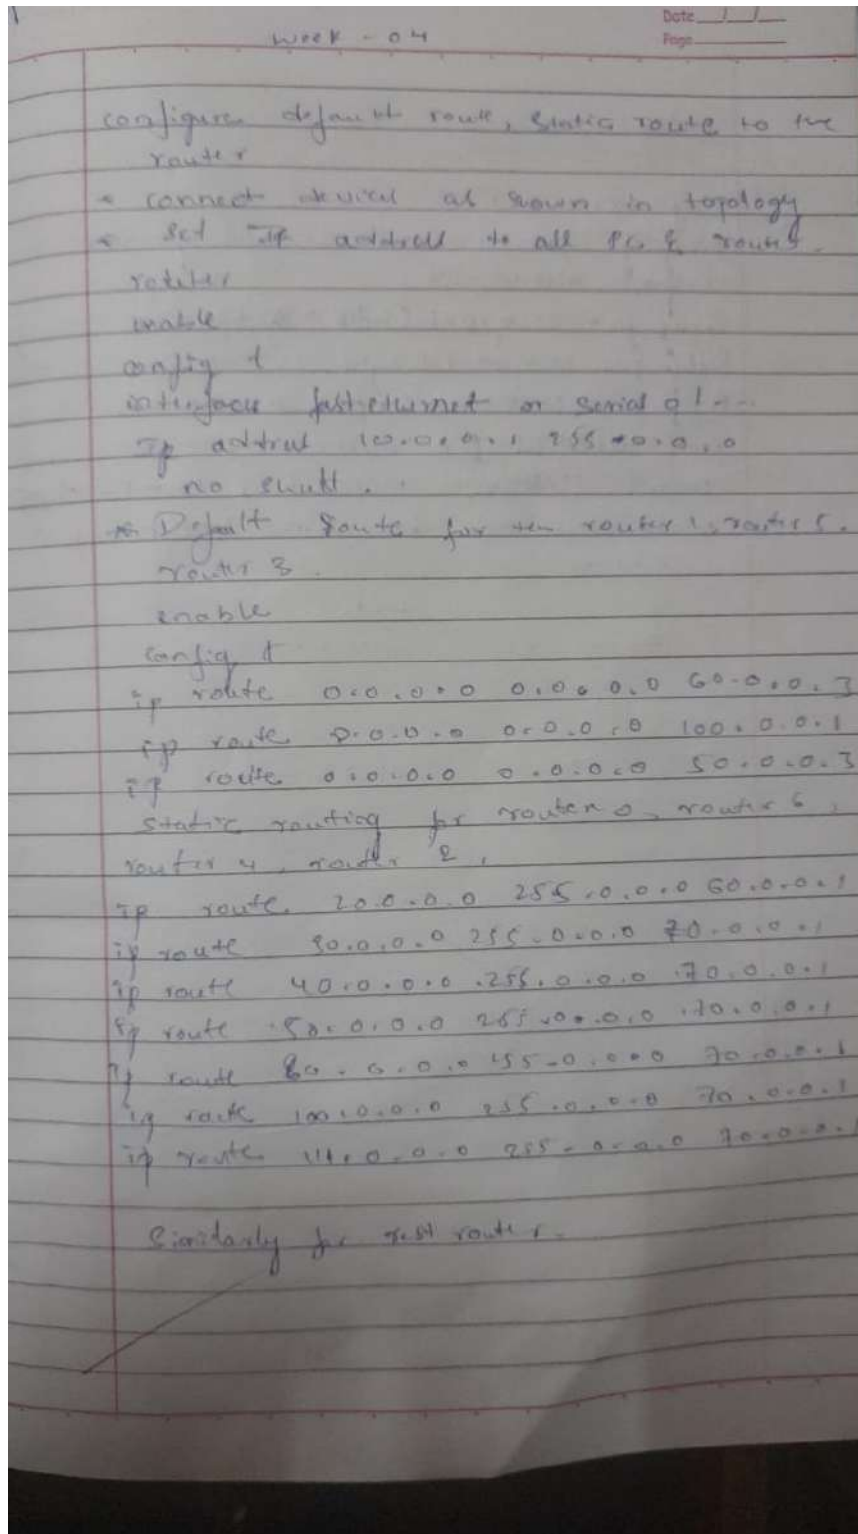 Week - 04
Date
Page
configure default route, static route to the
router
connect device as shown in topology
Set IP address to all PC & routers.
router
enable
config t
interface fastethernet or serial 0/---
ip address 10.0.0.1 255.0.0.0
no shutt.
Default route for the router 1, router 5,
router 3.
enable
config t
ip route 0.0.0.0 0.0.0.0 60.0.0.3
ip route 0.0.0.0 0.0.0.0 100.0.0.1
ip route 0.0.0.0 0.0.0.0 50.0.0.3
static routing for router 0, router 6,
router 4, router 2,
ip route 20.0.0.0 255.0.0.0 60.0.0.1
ip route 30.0.0.0 255.0.0.0 70.0.0.1
ip route 40.0.0.0 255.0.0.0 70.0.0.1
ip route 50.0.0.0 255.0.0.0 70.0.0.1
ip route 80.0.0.0 255.0.0.0 70.0.0.1
ip route 100.0.0.0 255.0.0.0 70.0.0.1
ip route 255.0.0.0 70.0.0.1
Similarly for rest router.